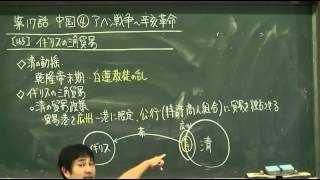 第17話 中国④アヘン戦争〜辛亥革命
イギリスの三角貿易
◇清の動揺
乾隆帝末期…白蓮教徒の乱
◇イギリスの三角貿易
○清の貿易政策
貿易港を広州一港に限定、公行(特許商人組合)に貿易を独占させる
茶
イギリス
清